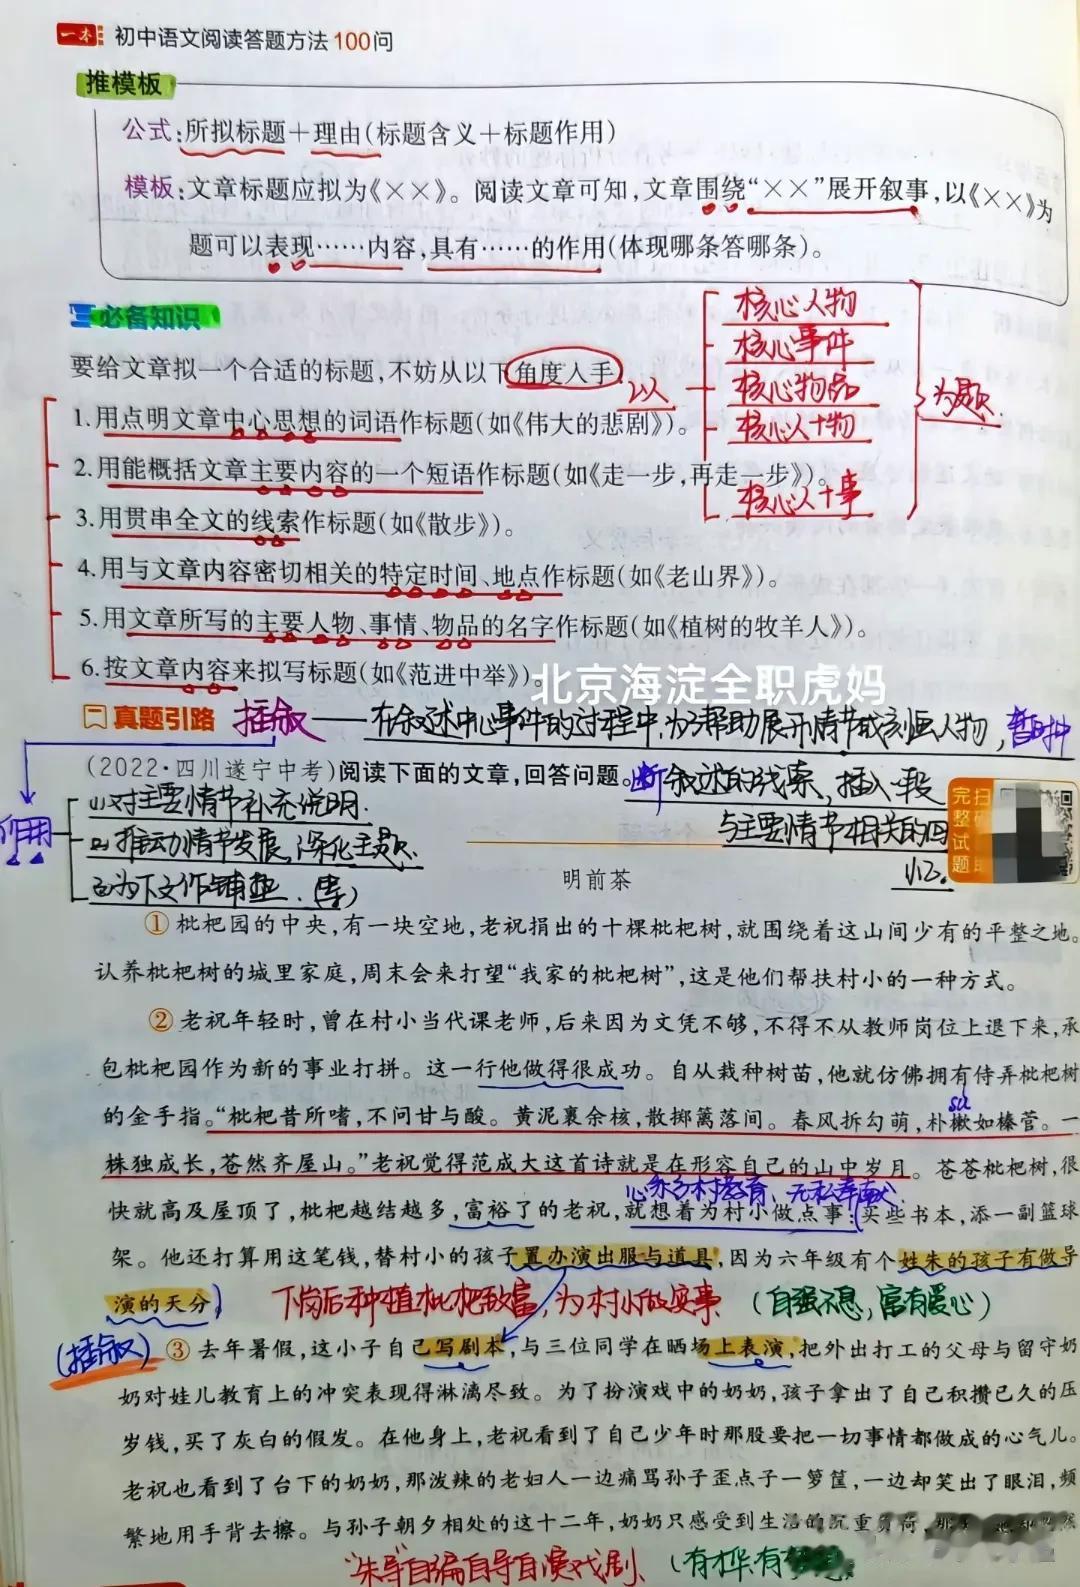 一本 初中语文阅读答题方法100问
推模板
公式:所拟标题+理由(标题含义+标题作用)
模板:文章标题应拟为《××》。阅读文章可知,文章围绕“××”展开叙事,以《××》为
题可以表现……内容,具有……的作用(体现哪条答哪条)。
必备知识
要给文章拟一个合适的标题,不妨从以下角度入手
以
核心人物
核心事件
核心物品
核心人+物
核心人+事
为题
1.用点明文章中心思想的词语作标题(如《伟大的悲剧》)。
2.用能概括文章主要内容的一个短语作标题(如《走一步,再走一步》)。
3.用贯串全文的线索作标题(如《散步》)。
4.用与文章内容密切相关的特定时间、地点作标题(如《老山界》)。
5.用文章所写的主要人物、事情、物品的名字作标题(如《植树的牧羊人》)。
6.按文章内容来拟写标题(如《范进中举》)。
北京海淀全职虎妈
真题引路 插叙——在叙述中心事件的过程中,为了帮助展开情节或刻画人物,暂时中
断叙述的线索,插入一段
与主要情节相关的回
忆。
(2022·四川遂宁中考)阅读下面的文章,回答问题。
作用
(1)对主要情节补充说明.
(2)推动情节发展,深化主题.
(3)为下文作铺垫.(等)
完整试题
扫码
明前茶
①枇杷园的中央,有一块空地,老祝捐出的十棵枇杷树,就围绕着这山间少有的平整之地。
认养枇杷树的城里家庭,周末会来打望“我家的枇杷树”,这是他们帮扶村小的一种方式。
②老祝年轻时,曾在村小当代课老师,后来因为文凭不够,不得不从教师岗位上退下来,承
包枇杷园作为新的事业打拼。这一行他做得很成功。自从栽种树苗,他就仿佛拥有侍弄枇杷树
的金手指。“枇杷昔所嗜,不问甘与酸。黄泥裹余核,散掷篱落间。春风拆勾萌,朴樕如榛菅。一
sù
株独成长,苍然齐屋山。”老祝觉得范成大这首诗就是在形容自己的山中岁月。苍苍枇杷树,很
心系乡村教育、无私奉献.
快就高及屋顶了,枇杷越结越多,富裕了的老祝,就想着为村小做点事:买些书本,添一副篮球
架。他还打算用这笔钱,替村小的孩子置办演出服与道具,因为六年级有个姓朱的孩子有做导
演的天分。
下岗后种植枇杷致富,为村小做实事 (自强不息,富有爱心)
(插叙)
③去年暑假,这小子自己写剧本,与三位同学在晒场上表演,把外出打工的父母与留守奶
奶对娃儿教育上的冲突表现得淋漓尽致。为了扮演戏中的奶奶,孩子拿出了自己积攒已久的压
岁钱,买了灰白的假发。在他身上,老祝看到了自己少年时那股要把一切事情都做成的心气儿。
老祝也看到了台下的奶奶,那泼辣的老妇人一边痛骂孙子歪点子一箩筐,一边却笑出了眼泪,频
繁地用手背去擦。与孙子朝夕相处的这十二年,奶奶只感受到生活的沉重负荷,
“朱导”自编自导自演戏剧、(有才华有